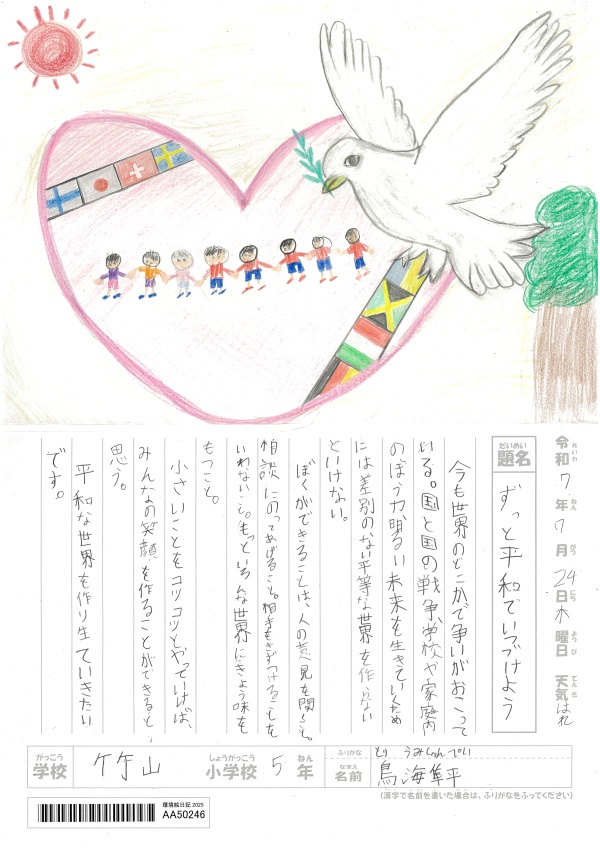 令和7年7月24日木曜日 天気はれ
れいわ ねん がつ にち ようび てんき
だいめい
題名 ずっと平和でいつづけよう
今も世界のどこかで争いがおこって
いる。国と国の戦争、学校や家庭内
のぼう力、明るい未来を生きていくため
には差別のない平等な世界を作らない
といけない。
ぼくができることは、人の意見を聞くこと。
相談にのってあげること。相手をきずつけることを
いわないこと。もっといろんな世界にきょう味を
もつこと。
小さいことをコツコツとやっていけば、
みんなの笑顔を作ることができると、
思う。
平和な世界を作り生ていきたい
です。
がっこう しょうがっこう ねん
学校 竹山 小学校 5年
ふりがな とりうみしゅんぺい
なまえ
名前 鳥海隼平
(漢字で名前を書いた場合は、ふりがなをふってください)
環境絵日記 2025
AA50246